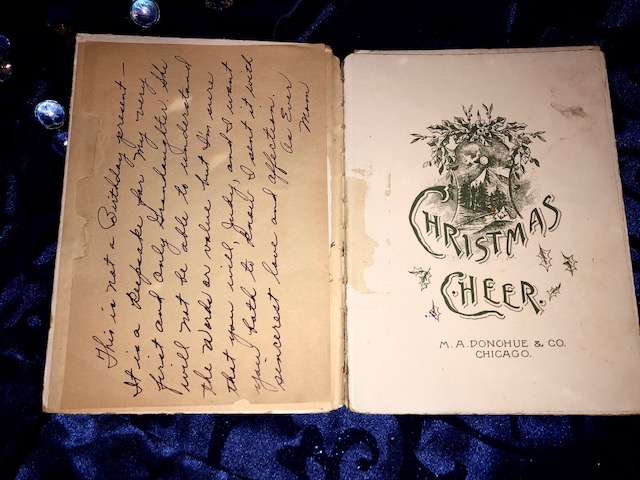 This is not a Birthday present –
It is a keepsake for my very
first and only Grandaughter She
will not be able to understand
the words or value but I'm sure
that you will, Judy, and I want
you both to know I sent it with
sincerest love and affection.
As Ever
Mom
CHRISTMAS
CHEER.
M. A. DONOHUE & CO.
CHICAGO.